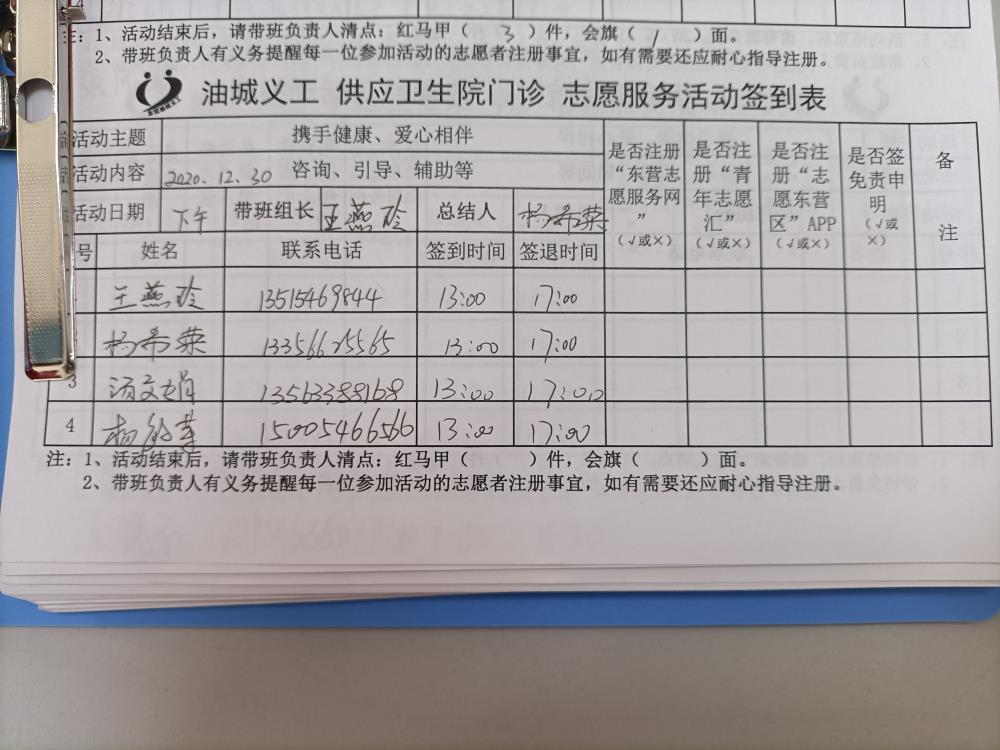 注：1、活动结束后，请带班负责人清点：红马甲（ 3 ）件，会旗（ 1 ）面。
2、带班负责人有义务提醒每一位参加活动的志愿者注册事宜，如有需要还应耐心指导注册。
油城义工 供应卫生院门诊 志愿服务活动签到表
活动主题 携手健康、爱心相伴 是否注册“东营志愿服务网”（√或×） 是否注册“青年志愿汇”（√或×） 是否注册“志愿东营区”APP（√或×） 是否签免责申明（√或×） 备注
活动内容 2020.12.30 咨询、引导、辅助等
活动日期 下午 带班组长 王燕玲 总结人 杨希荣
号 姓名 联系电话 签到时间 签退时间
王燕玲 13515469844 13:00 17:00
杨希荣 13356625565 13:00 17:00
3 汤文娟 13563388168 13:00 17:00
4 杨 15005466566 13:00 17:00
注：1、活动结束后，请带班负责人清点：红马甲（ ）件，会旗（ ）面。
2、带班负责人有义务提醒每一位参加活动的志愿者注册事宜，如有需要还应耐心指导注册。